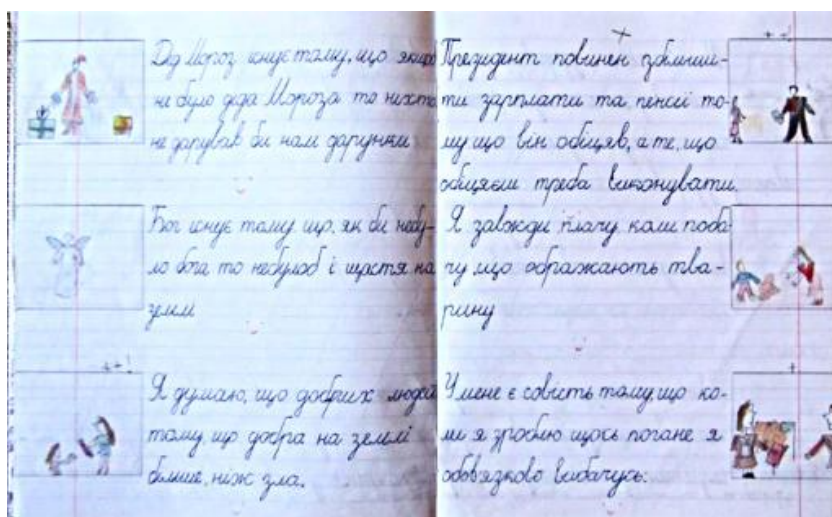 Дід Мороз існує тому, що якщо
не було діда Мороза то ніхто
не дарував би нам дарунки
Бог існує тому що, як би небу-
ло бога то небулоб і щастя на
землі
Я думаю, що добрих людей
тому, що добра на землі
більше, ніж зла.
Президент повинен збільши-
ти зарплати та пенсії то-
му що він обіцяв, а те, що
обіцяєш треба виконувати.
Я завжди плачу коли поба-
чу що ображають тва-
рину
У мене є совість тому, що ко-
ли я зроблю щось погане я
обов'язково вибачусь.